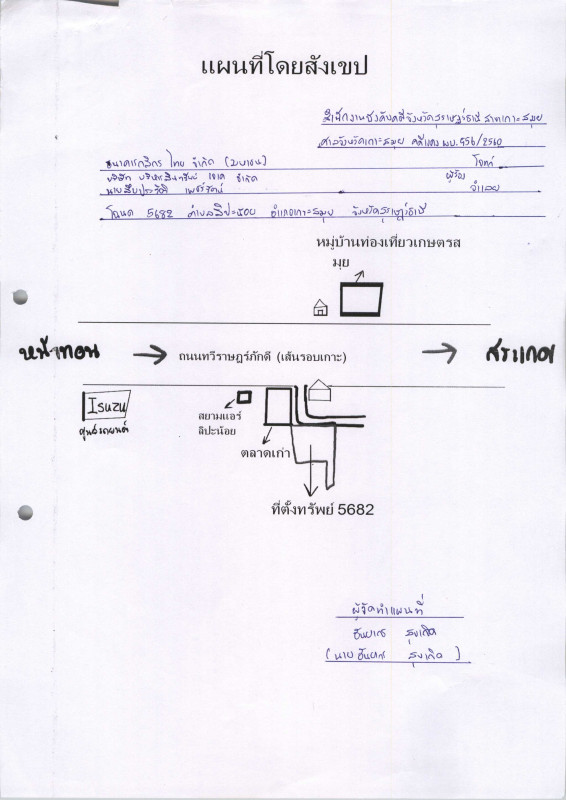 แผนที่โดยสังเขป
สำนักงานบังคับคดีจังหวัดสุราษฎร์ธานี สาขาเกาะสมุย
ศาลจังหวัดเกาะสมุย คดีแดง ผบ.956/2560
ธนาคารกสิกรไทย จำกัด (มหาชน) โจทก์
บริษัท บริหารสินทรัพย์ เจเค จำกัด ผู้ร้อง
เพชรรัตน์ จำเลย
โฉนด 5682 ตำบลลิปะน้อย อำเภอเกาะสมุย จังหวัดสุราษฎร์ธานี
หมู่บ้านท่องเที่ยวเกษตรส
มุย
หน้าทอน
ถนนทวีราษฎร์ภักดี (เส้นรอบเกาะ)
สระเกศ
Isuzu
ศูนย์รถยนต์
สยามแอร์
ลิปะน้อย
ตลาดเก่า
ที่ตั้งทรัพย์ 5682
ผู้จัดทำแผนที่